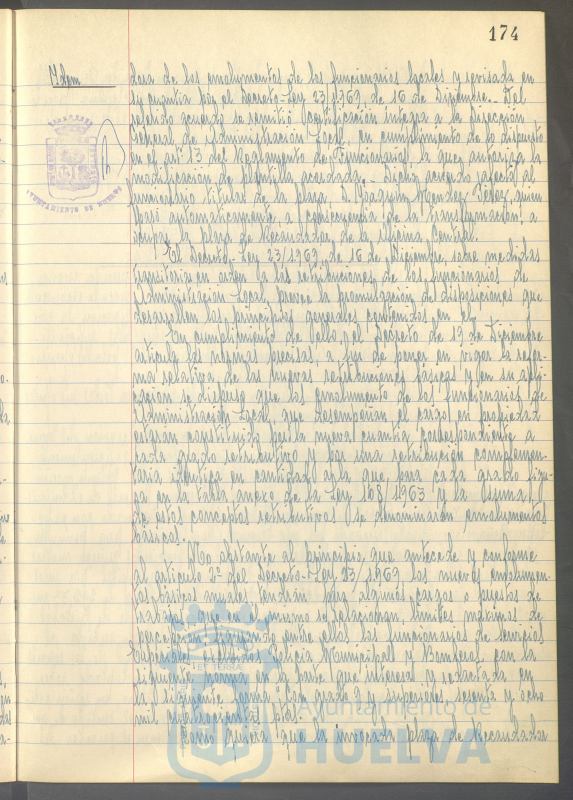 174
Idem
dora de los emolumentos de los funcionarios locales y revisada en
su cuantía por el Decreto-Ley 23/1969, de 16 de Diciembre.- Del
referido acuerdo se remitió Certificación íntegra a la Dirección
General de Administración Local, en cumplimiento de lo dispuesto
en el artº 13 del Reglamento de Funcionarios, la que autoriza la
modificación de plantilla acordada.- Dicho acuerdo afectó al
funcionario titular de la plaza, D. Joaquín Mendez Pérez, quien
pasó automáticamente, a consecuencia de la transformación, a
ocupar la plaza de Recaudador de la Oficina Central.
El Decreto-Ley 23/1969, de 16 de Diciembre, sobre medidas
transitorias en orden a las retribuciones de los funcionarios de
Administración Local, prevee la promulgación de disposiciones que
desarrollen los principios generales contenidos en el.
En cumplimiento de ello, el Decreto de 19 de Diciembre
articula las normas precisas, a fin de poner en vigor la refor-
ma relativa de las nuevas retribuciones básicas y en su apli-
cación se dispuso que los emolumentos de los funcionarios de
Administración Local, que desempeñan el cargo en propiedad
estarán constituido por la nueva cuantía, correspondiente a
cada grado retributivo y por una retribución complemen-
taria idéntica en cantidad a la que, para cada grado figu-
ra en la tabla anexo de la Ley 108/1963 y la suma
de estos conceptos retributivos se denominarán emolumentos
básicos.
No obstante al principio que antecede y conforme
al artículo 2º del Decreto-Ley 23/1969, los nuevos emolumen-
tos básicos anuales tendrán para algunos cargos o puestos de
trabajo, que en el mismo se relacionan, límites máximos de
percepción, figurando entre ellos los funcionarios de Servicios
Especiales, excluidos Policía Municipal y Bomberos, con la
siguiente norma en la parte que interesa y redactada en
la siguiente forma: "con grado 7 y superiores sesenta y ocho
mil cuatrocientas ptas.
Como quiera que la invocada plaza de Recaudador
AYUNTAMIENTO DE HUELVA
Ayuntamiento de
HUELVA